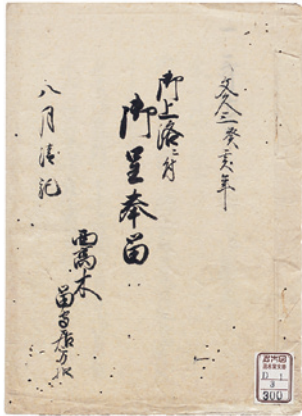 文久三癸亥年
御上洛ニ付
御呈奉留
八月清記
西高木
留守居方扣
300